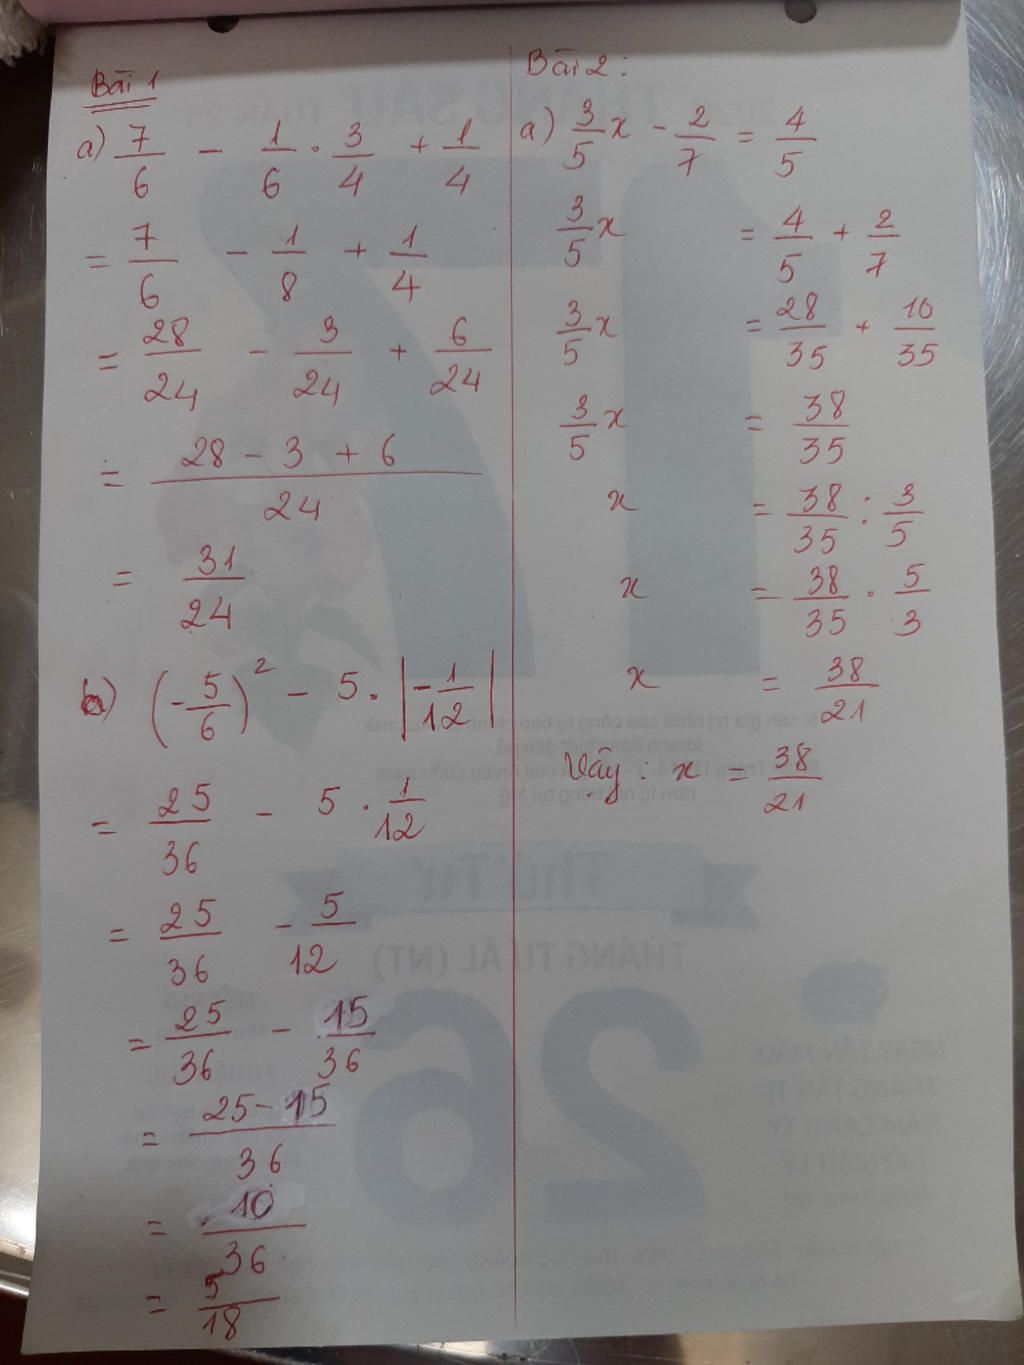 Bài 1
a) 7/6 - 1/6 . 3/4 + 1/4
= 7/6 - 1/8 + 1/4
= 28/24 - 3/24 + 6/24
= (28 - 3 + 6)/24
= 31/24
b) (-5/6)² - 5 . |-1/12|
= 25/36 - 5 . 1/12
= 25/36 - 5/12
= 25/36 - 15/36
= (25 - 15)/36
= 10/36
= 5/18
Bài 2:
a) 3/5 x - 2/7 = 4/5
3/5 x = 4/5 + 2/7
3/5 x = 28/35 + 10/35
3/5 x = 38/35
x = 38/35 : 3/5
x = 38/35 . 5/3
x = 38/21
Vậy: x = 38/21
17
Thứ Tư
THÁNG TƯ ÂL (NT)
26